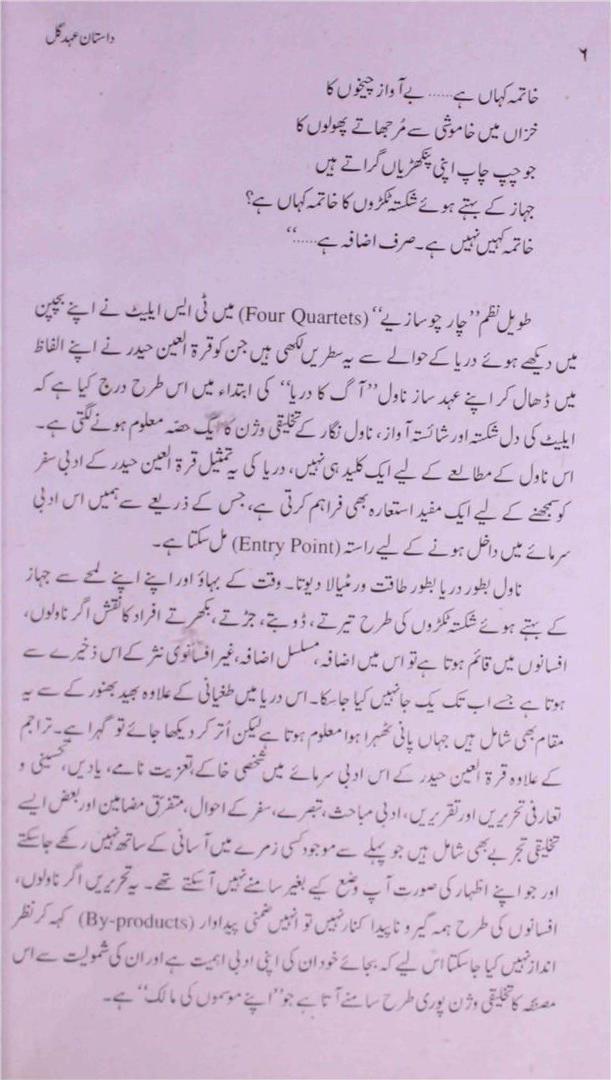 داستان عہد گل
۶
خاتمہ کہاں ہے...... بے آواز چیخوں کا
خزاں میں خاموشی سے مُرجھاتے پھولوں کا
جو چپ چاپ اپنی پنکھڑیاں گراتے ہیں
جہاز کے بہتے ہوئے شکستہ ٹکڑوں کا خاتمہ کہاں ہے؟
خاتمہ کہیں نہیں ہے۔ صرف اضافہ ہے.....“
طویل نظم ”چار چو سازیے“ (Four Quartets) میں ٹی ایس ایلیٹ نے اپنے بچپن
میں دیکھے ہوئے دریا کے حوالے سے یہ سطریں لکھی ہیں جن کو قرۃ العین حیدر نے اپنے الفاظ
میں ڈھال کر اپنے عہد ساز ناول ”آگ کا دریا“ کی ابتداء میں اس طرح درج کیا ہے کہ
ایلیٹ کی دل شکستہ اور شائستہ آواز، ناول نگار کے تخلیقی وژن کا ایک حصّہ معلوم ہونے لگتی ہے۔
اس ناول کے مطالعے کے لیے ایک کلید ہی نہیں، دریا کی یہ تمثیل قرۃ العین حیدر کے ادبی سفر
کو سمجھنے کے لیے ایک مفید استعارہ بھی فراہم کرتی ہے، جس کے ذریعے سے ہمیں اس ادبی
سرمائے میں داخل ہونے کے لیے راستہ (Entry Point) مل سکتا ہے۔
ناول بطور دریا بطور طاقت ور مٹیالا دیوتا۔ وقت کے بہاؤ اور اپنے اپنے لمحے سے جہاز
کے بہتے ہوئے شکستہ ٹکڑوں کی طرح تیرتے، ڈوبتے، جڑتے، بکھرتے افراد کا نقش اگر ناولوں،
افسانوں میں قائم ہوتا ہے تو اس میں اضافہ، مسلسل اضافہ، غیر افسانوی نثر کے اس ذخیرے سے
ہوتا ہے جسے اب تک یک جا نہیں کیا جاسکا۔ اس دریا میں طغیانی کے علاوہ بھید بھنور کے سے یہ
مقام بھی شامل ہیں جہاں پانی ٹھہرا ہوا معلوم ہوتا ہے لیکن اُتر کر دیکھا جائے تو گہرا ہے۔ تراجم
کے علاوہ قرۃ العین حیدر کے اس ادبی سرمائے میں شخصی خاکے، تعزیت نامے، یادیں، تحسینی و
تعارفی تحریریں اور تقریریں، ادبی مباحث، تبصرے، سفر کے احوال، متفرّق مضامین اور بعض ایسے
تخلیقی تجربے بھی شامل ہیں جو پہلے سے موجود کسی زمرے میں آسانی کے ساتھ نہیں رکھے جاسکتے
اور جو اپنے اظہار کی صورت آپ وضع کیے بغیر سامنے نہیں آسکتے تھے۔ یہ تحریریں اگر ناولوں،
افسانوں کی طرح ہمہ گیر و ناپیدا کنار نہیں تو انہیں ضمنی پیداوار (By-products) کہہ کر نظر
انداز نہیں کیا جاسکتا اس لیے کہ بجائے خود ان کی اپنی ادبی اہمیت ہے اور ان کی شمولیت سے اس
مصنفہ کا تخلیقی وژن پوری طرح سامنے آتا ہے جو ”اپنے موسموں کی مالک“ ہے۔